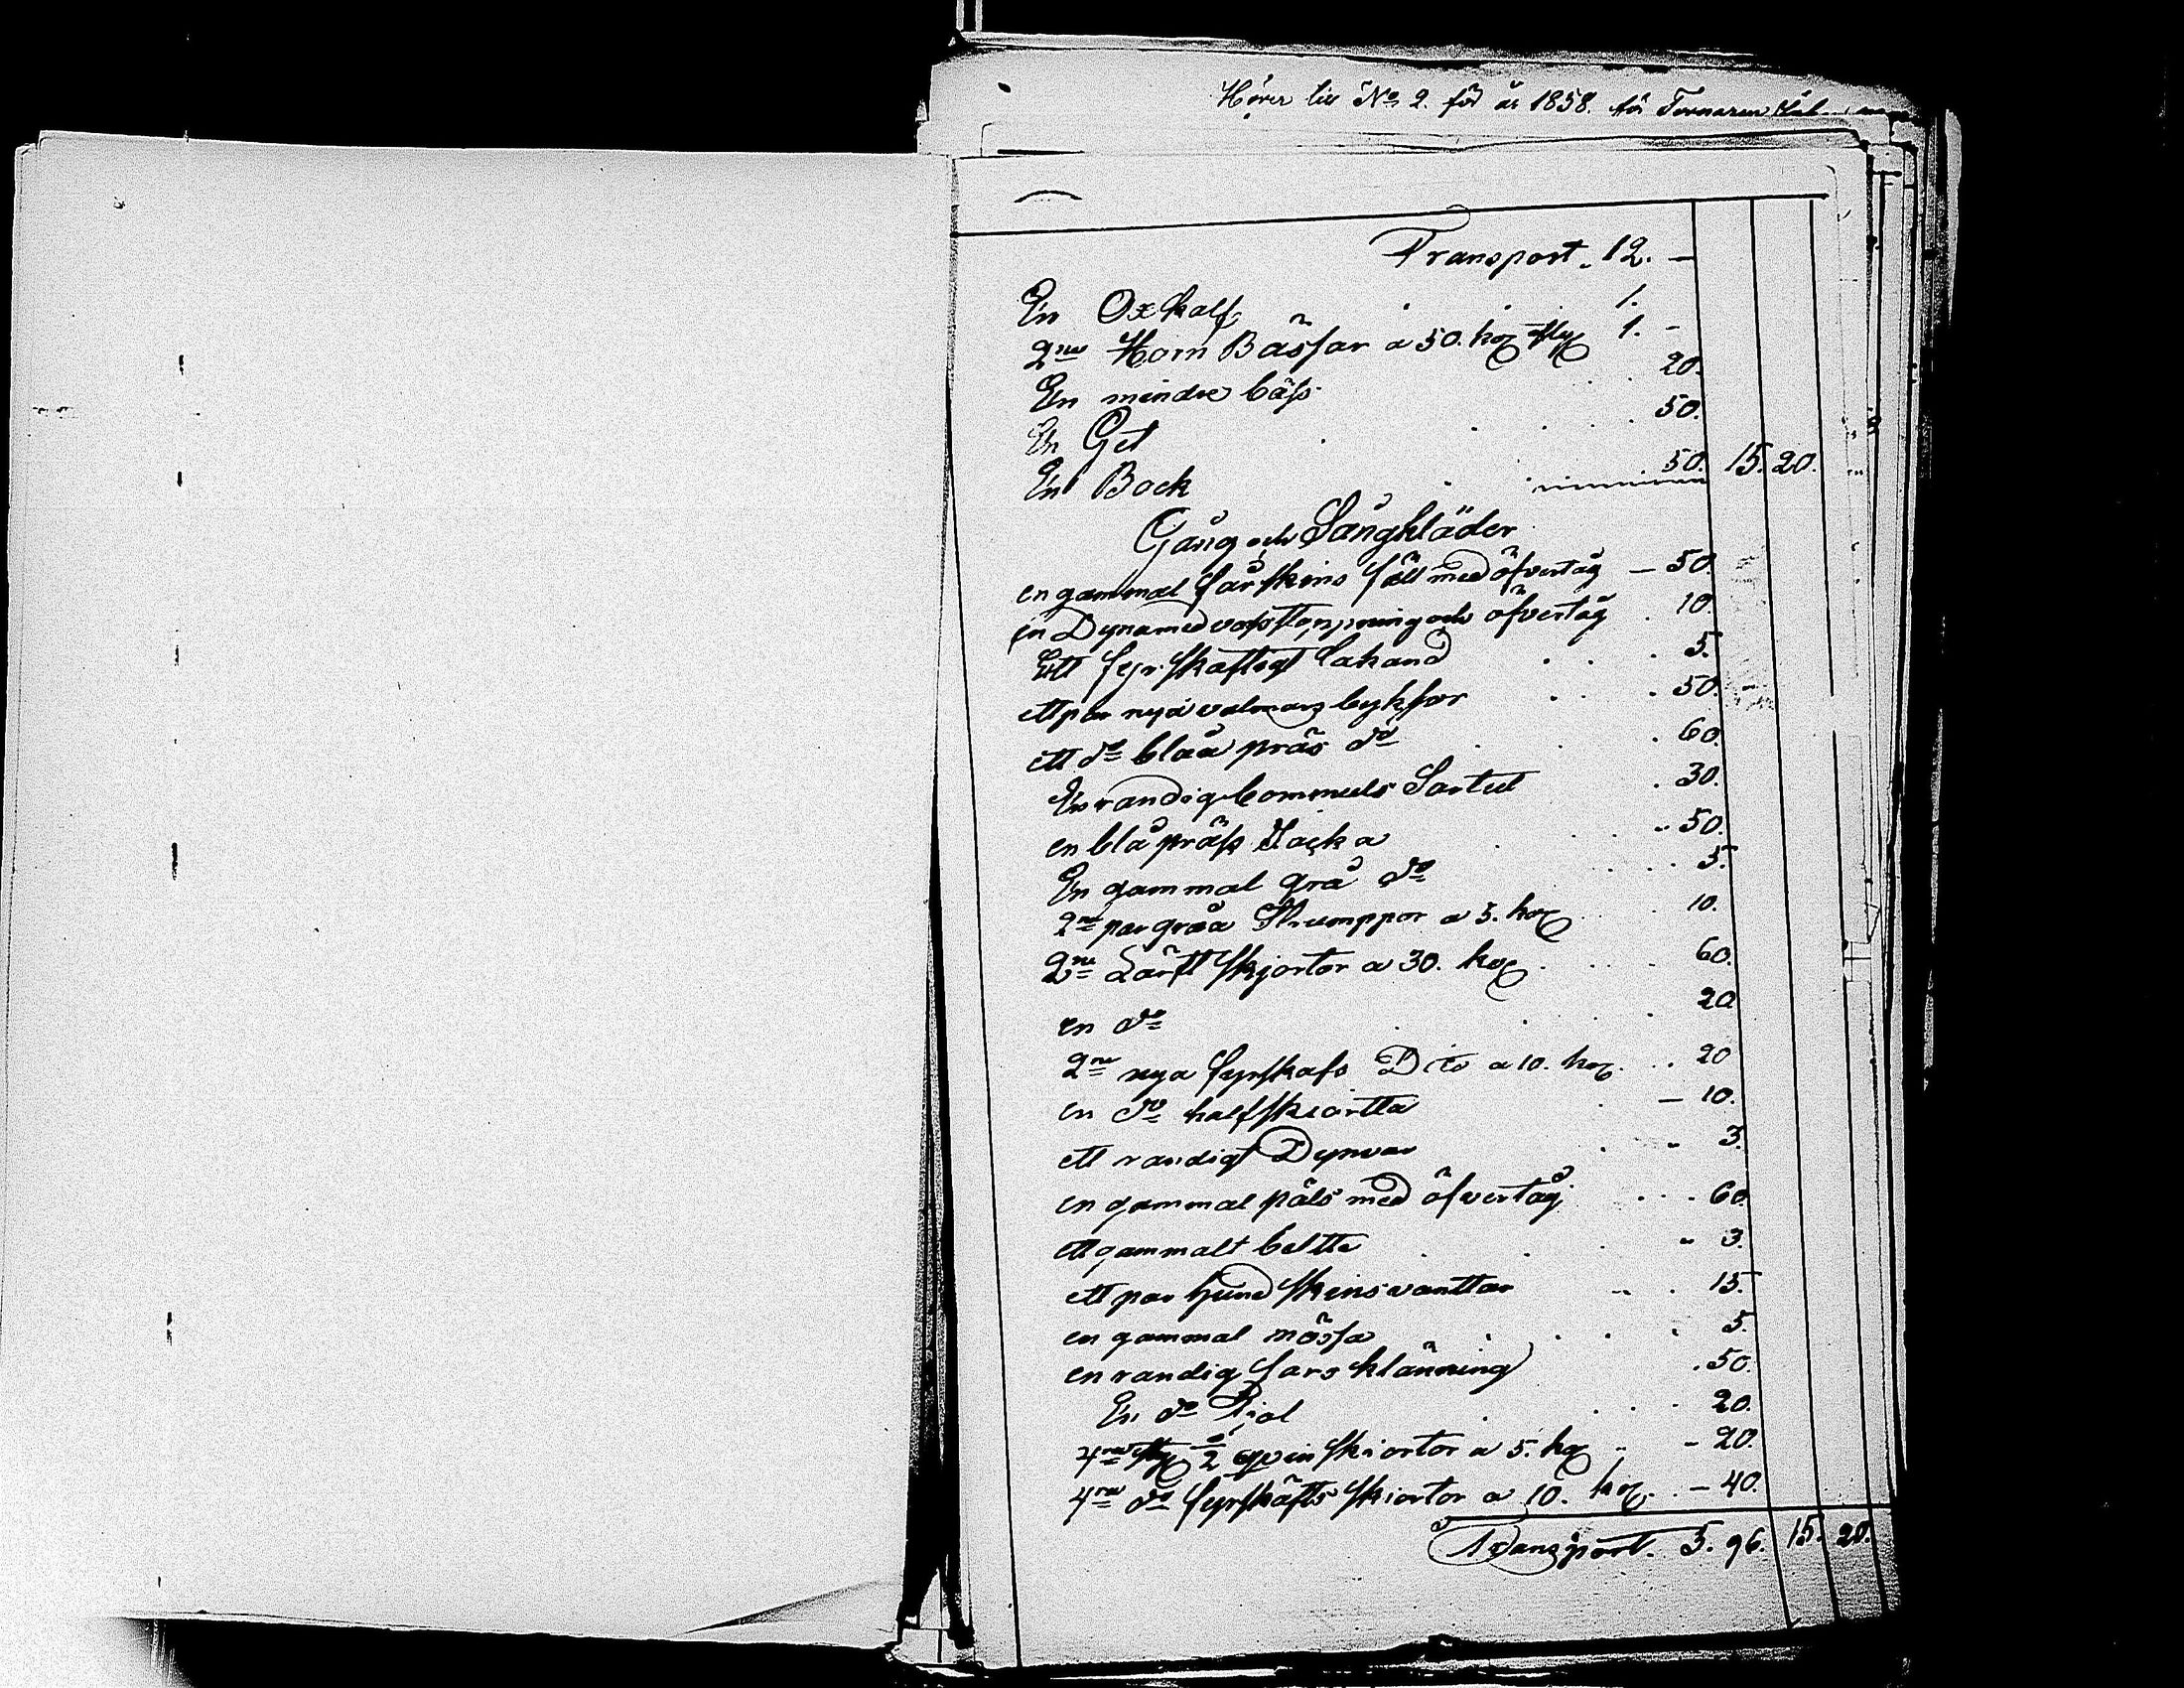 Hörer till No 2. för år 1858. för Tornaren
Transport. 12. —
En Oxkalf 1.
2ne Horn Bässar a 50. kop sty 1. -
En mindre bäss 20.
En Get 50.
En Bock 50. 15. 20.
Gång och Sängkläder
en gammal fårskins fäll med öfvertåg — 50.
en Dyna med vasstoppning och öfvertåg 10.
Ett fyrskaftigt Lakand 5.
ett par nya valmars byksor 50.
ett do blåa präs do 60.
En randig bommuls Sartut 30.
en blå präss Jacka 50.
En gammal grå do 5.
2ne par gråa Strumppor a 5. kop 10.
2ne Lärft skjortor a 30. kop 60.
en do 20
2ne nya fyrskafs Dito a 10. kop. 20
en do halfskiortta — 10.
ett randigt Dynvar 3.
en gammal päls med öfvertåg 60
ett gammalt beltte 3.
ett par hund skins vanttar 15.
en gammal mössa 5.
en randig fars klänning 50.
En do Kjol 20.
4ra sty 1/2 qvin skiortor a 5. kop - 20.
4ra do fyrskäfts skiortor a 10. kop. — 40.
Transport. 5. 96. 15. 20.